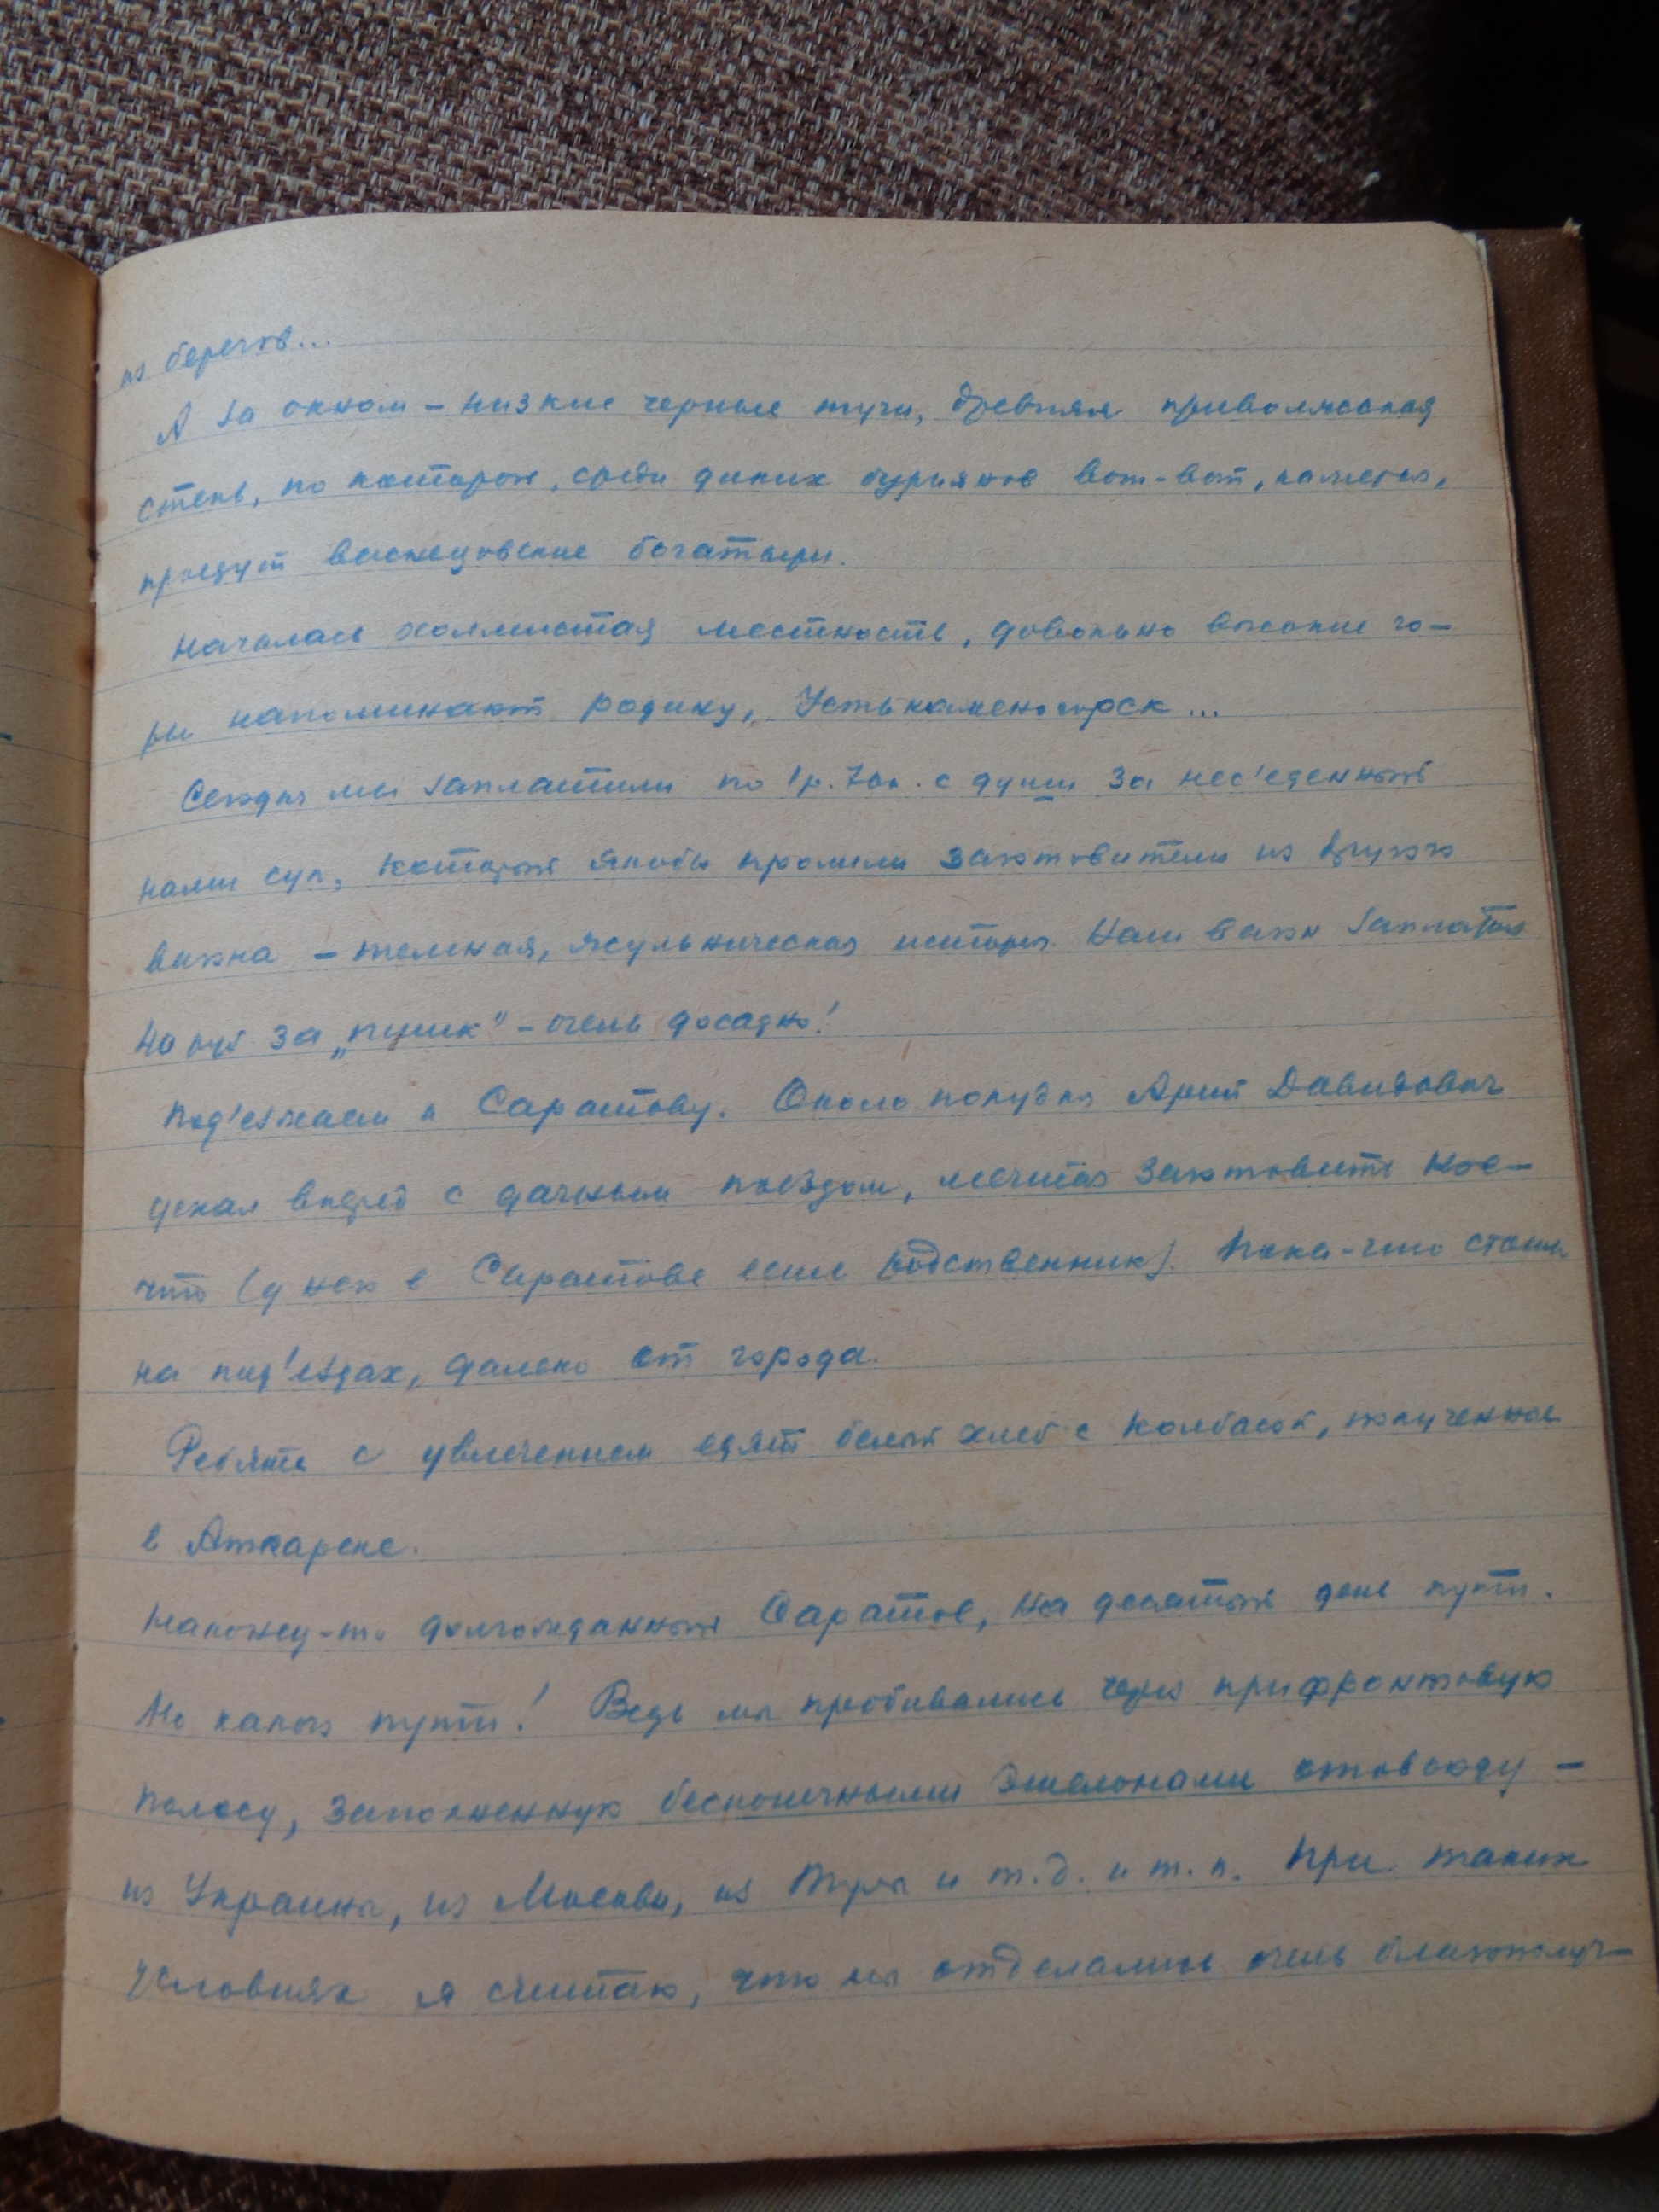 из берегов...
А за окном – низкие черные тучи, древняя приволжская
степь, по которой, среди диких бурьянов вот-вот, кажется,
проедут васнецовские богатыри.
Началась холмистая местность, довольно высокие го-
ры напоминают родину, Устькаменогорск...
Сегодня мы заплатили по 1р. 70к. с души за нес'еденный
нами суп, который якобы проели заготовители из другого
вагона – темная, жульническая история. Наш вагон заплатил
40 руб за „пшик" – очень досадно!
Под'езжаем к Саратову. Около полудня Арий Давидович
уехал вперед с дачным поездом, мечтая заготовить кое-
что (у него в Саратове есть родственник). Пока-что стоим
на под'ездах, далеко от города.
Ребята с увлечением едят белый хлеб с колбасой, полученные
в Аткарске.
Наконец-то долгожданный Саратов, на десятый день пути.
Но каков путь! Ведь мы пробивались через прифронтовую
полосу, заполненную бесконечными эшелонами отовсюду –
из Украины, из Москвы, из Тулы и т.д. и т.п. При таких
условиях я считаю, что мы отделались очень благополуч-